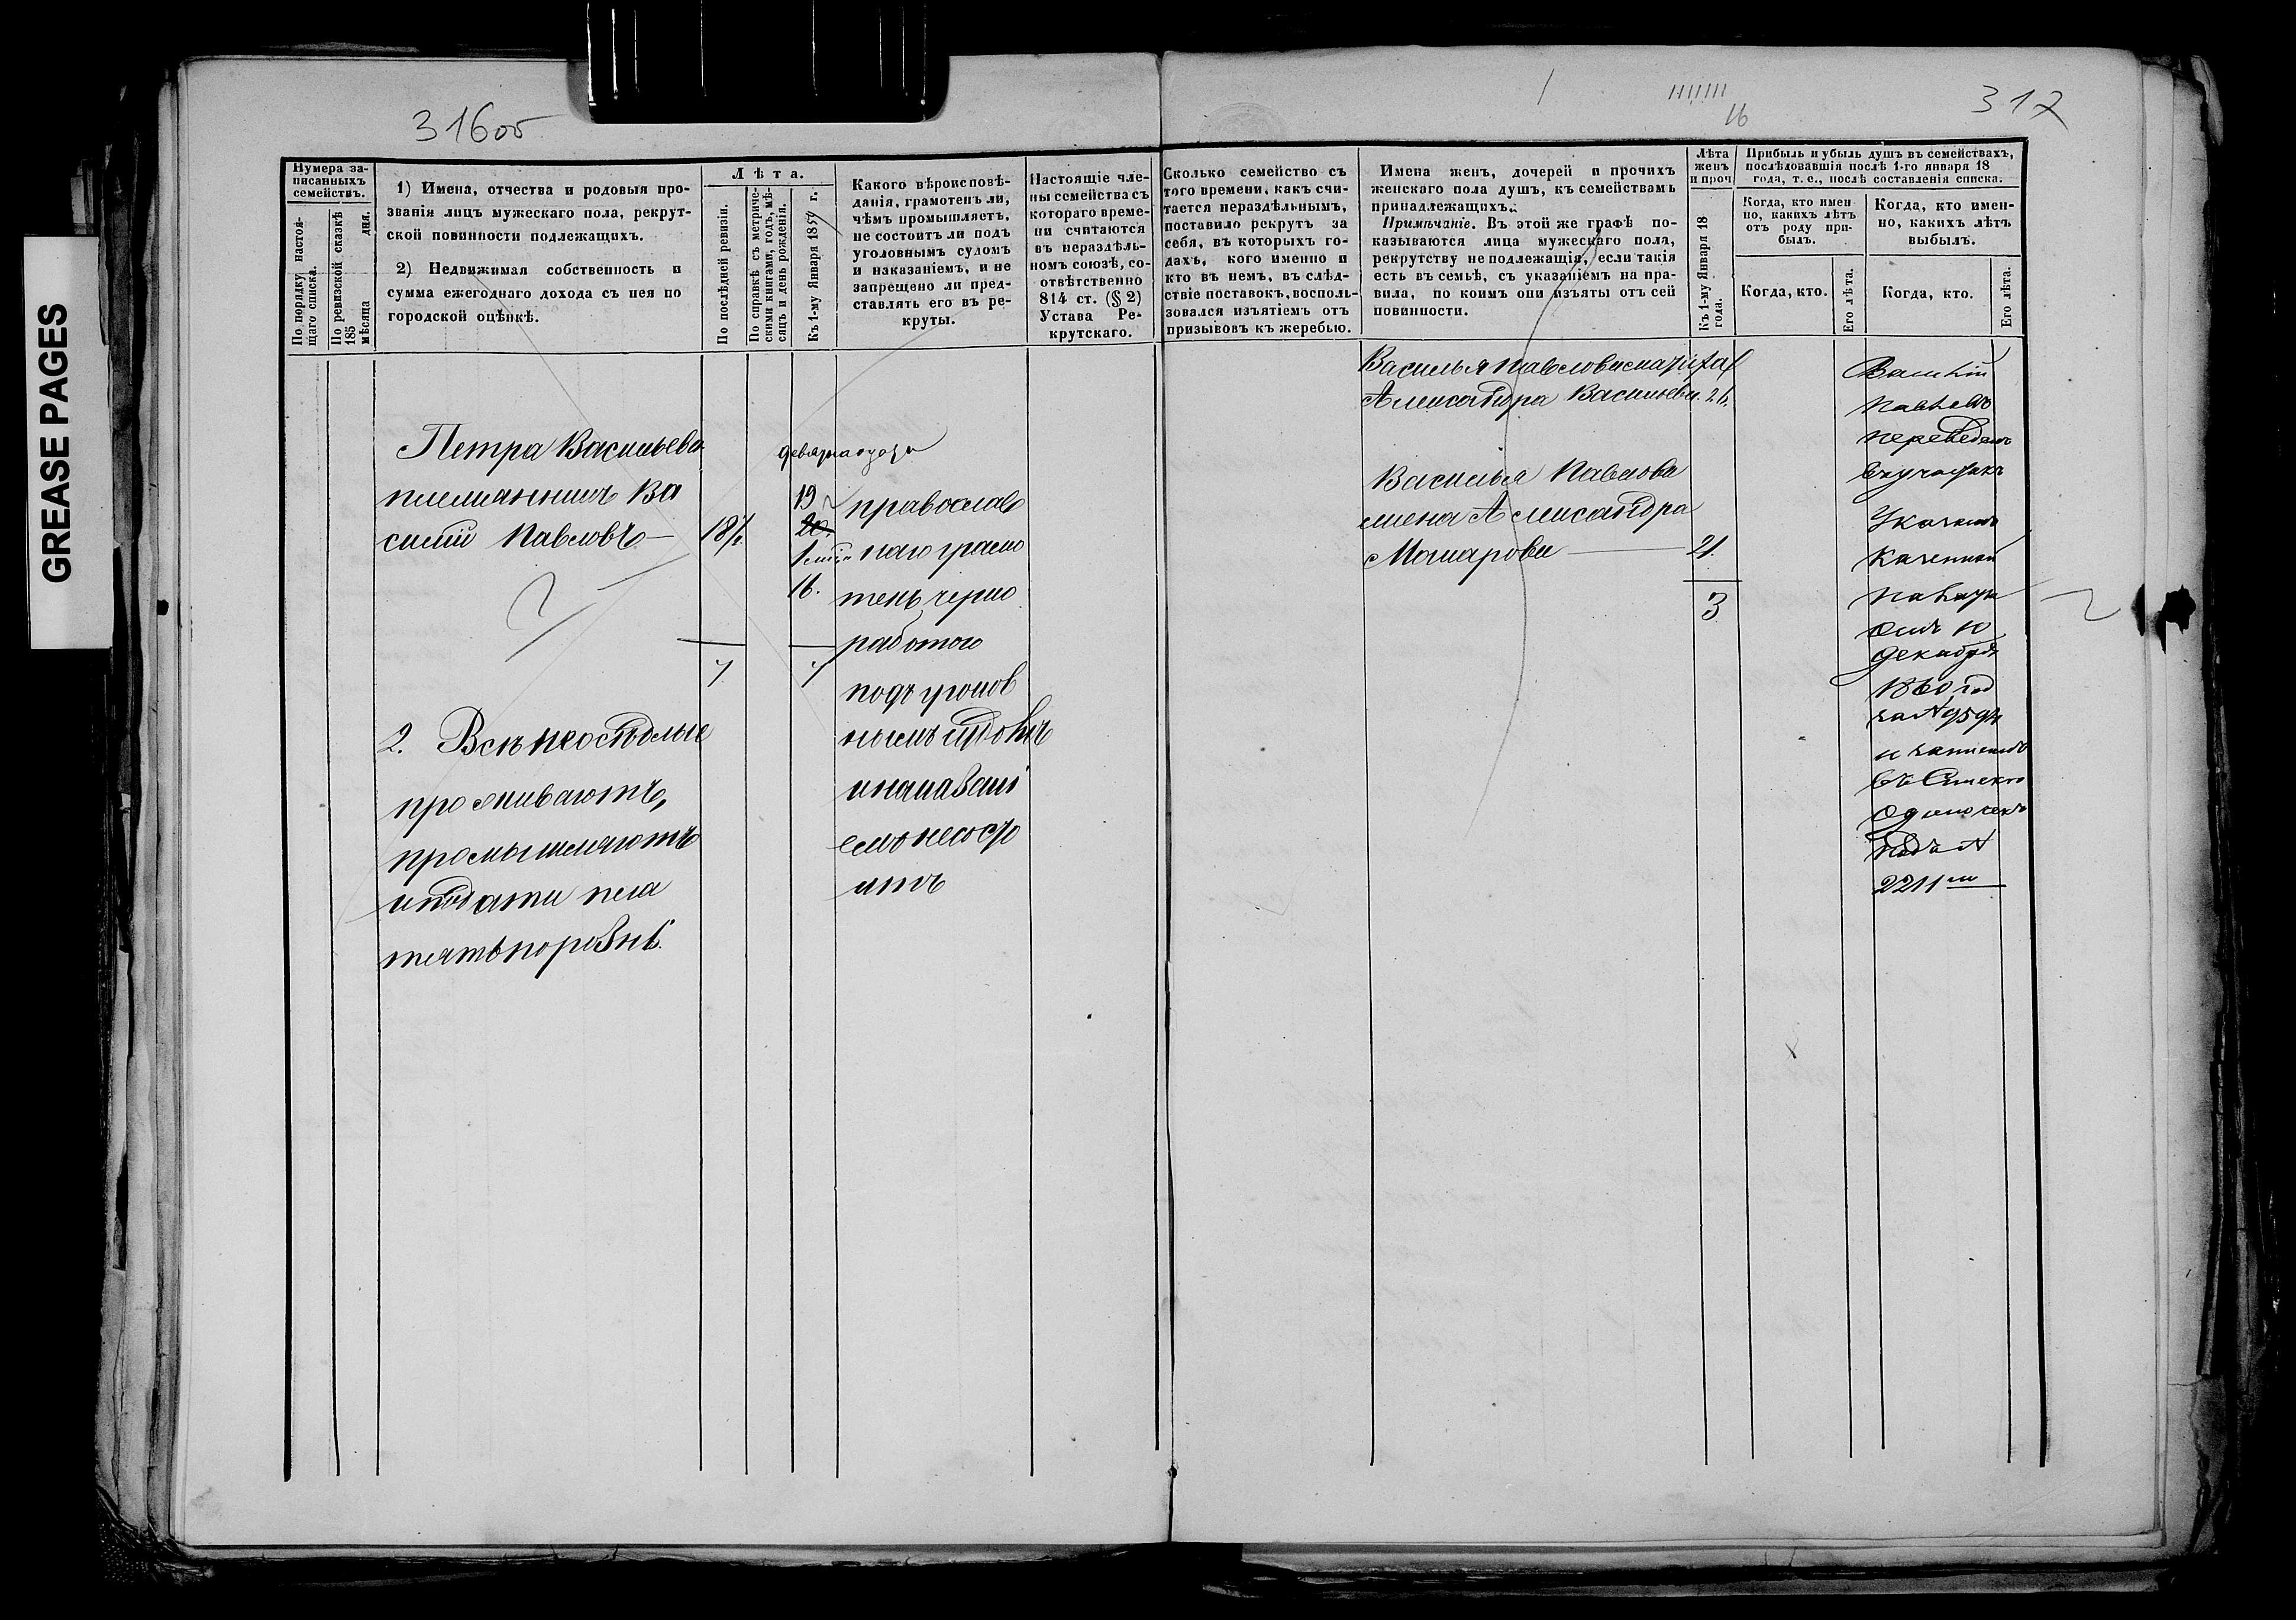 GREASE PAGES
316об
Нумера за-
писанныхъ
семействъ.
По порядку настоя-
щаго списка.
По ревизской сказкѣ
185 дня.
мѣсяца
1) Имена, отчества и родовыя про-
званія лицъ мужескаго пола, рекрут-
ской повинности подлежащихъ.
2) Недвижимая собственность и
сумма ежегоднаго дохода съ нея по
городской оцѣнкѣ.
Лѣта.
По послѣдней ревизіи.
По справкѣ съ метриче-
скими книгами, годъ, мѣ-
сяцъ и день рожденія.
Къ 1-му Января 185 г.
Какого вѣроисповѣ-
данія, грамотенъ ли,
чѣмъ промышляетъ,
не состоитъ ли подъ
уголовнымъ судомъ
и наказаніемъ, и не
запрещено ли пред-
ставлять его въ ре-
круты.
Настоящіе чле-
ны семейства съ
котораго време-
ни считаются
въ нераздѣль-
номъ союзѣ, со-
отвѣтственно
814 ст. (§ 2)
Устава Ре-
крутскаго.
Петра Васильева
племянникъ Ва
силій Павловъ
18½
девятнадцати
19
20
16.
православ
наго грамо
тенъ черно
работою
подъ уголов
нымъ судомъ
и наказані
емъ несосто
итъ
7
7
2. Всѣ неосѣдлые
проживаютъ,
промышляютъ
и подати пла
тятъ порознѣ.
317
16
Сколько семейство съ
того времени, какъ счи-
тается нераздѣльнымъ,
поставило рекрутъ за
себя, въ которыхъ го-
дахъ, кого именно и
кто въ немъ, въ слѣд-
ствіе поставокъ, восполь-
зовался изъятіемъ отъ
призывовъ къ жеребью.
Имена женъ, дочерей и прочихъ
женскаго пола душъ, къ семействамъ
принадлежащихъ.
Примѣчаніе. Въ этой же графѣ по-
казываются лица мужескаго пола,
рекрутству не подлежащія, если такія
есть въ семьѣ, съ указаніемъ на пра-
вила, по коимъ они изъяты отъ сей
повинности.
Лѣта
женъ
и проч
Къ 1-му Января 18
года.
Прибыль и убыль душъ въ семействахъ,
послѣдовавшія послѣ 1-го января 18
года, т. е., послѣ составленія списка.
Когда, кто имен
но, какихъ лѣтъ
отъ роду при-
былъ.
Когда, кто имен-
но, какихъ лѣтъ
выбылъ.
Когда, кто.
Его лѣта.
Когда, кто.
Его лѣта.
Василья Павлова
Александра Васильева
Василья Павлова
жена Александра
Макарова 21.
3
Василій
Павловъ
переведенъ
Указомъ
Казенной
Палаты
отъ 10
декабря
1860 год
за №
и записанъ
въ
подъ №
2211